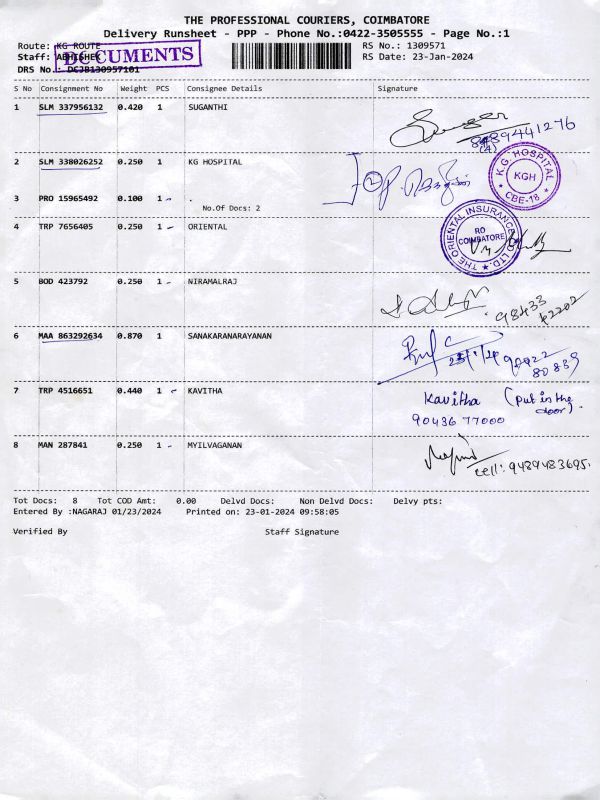 THE PROFESSIONAL COURIERS, COIMBATORE
Delivery Runsheet - PPP - Phone No.:0422-3505555 - Page No.:1
Route: KG ROUTE
RS No.: 1309571
Staff: ABHISHEK
DOCUMENTS
RS Date: 23-Jan-2024
DRS No.: DCJB130957101
S No Consignment No Weight PCS Consignee Details Signature
1 SLM 337956132 0.420 1 SUGANTHI
8489441276
2 SLM 338026252 0.250 1 KG HOSPITAL
2
K.G. HOSPITAL
KGH
CBE-18
3 PRO 15965492 0.100 1 .
No.Of Docs: 2
4 TRP 7656405 0.250 1 ORIENTAL
THE ORIENTAL INSURANCE CO. LTD.
RO
COIMBATORE
5 BOD 423792 0.250 1 NIRAMALRAJ
98433
42202
6 MAA 863292634 0.870 1 SANAKARANARAYANAN
23/1/24 90922
80839
7 TRP 4516651 0.440 1 KAVITHA
Kavitha (put in the
door).
90436 77000
8 MAN 287841 0.250 1 MYILVAGANAN
cell: 9489483695.
Tot Docs: 8 Tot COD Amt: 0.00 Delvd Docs: Non Delvd Docs: Delvy pts:
Entered By :NAGARAJ 01/23/2024 Printed on: 23-01-2024 09:58:05
Verified By Staff Signature